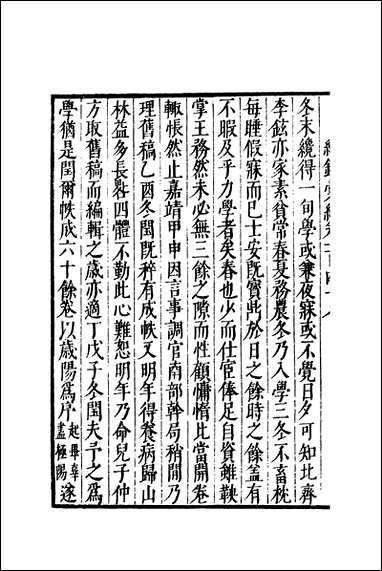 冬末纔得一旬學或兼夜寐或不覺日夕可知比齊
李鉉亦家素貧常春夏務農冬乃入學三冬不畜枕
每睡假寐而已士安既寶此於日之餘時之餘蓋有
不暇及乎力學者矣春也少而仕宦俸足自資雖鞅
掌王務然未必無三餘之隙而性顓慵惰比當開卷
輙悵然止嘉靖甲申因言事調官南部幹局稍閒乃
理舊稿乙酉冬閏既稡有成帙又明年得養病歸山
林益多長晷四體不勤此心難恕明年乃命兒子仲
方取舊稿而編輯之歲亦適丁戊子冬閏夫予之爲
學猶是閏爾帙成六十餘卷以歲陽爲序起畢辜盡極陽遂